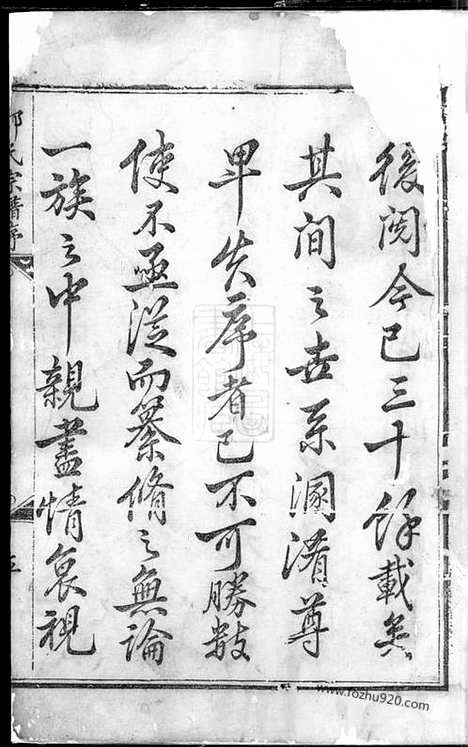 後閱今已三十餘載矣
其間之世系溷淆尊
卑失序者已不可勝數
使不亟從而纂脩之無論
一族之中親盡情衰視
氏宗譜序
五
www.fozhu920.com